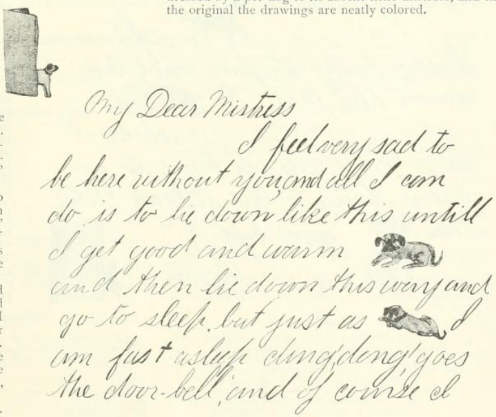 the original the drawings are neatly colored.
My Dear Mistress
I feel very sad to
be here without you, and all I can
do is to lie down like this untill
I get good and warm
and then lie down this way and
go to sleep, but just as I
am fast asleep ding, dong! goes
the door-bell, and of course I